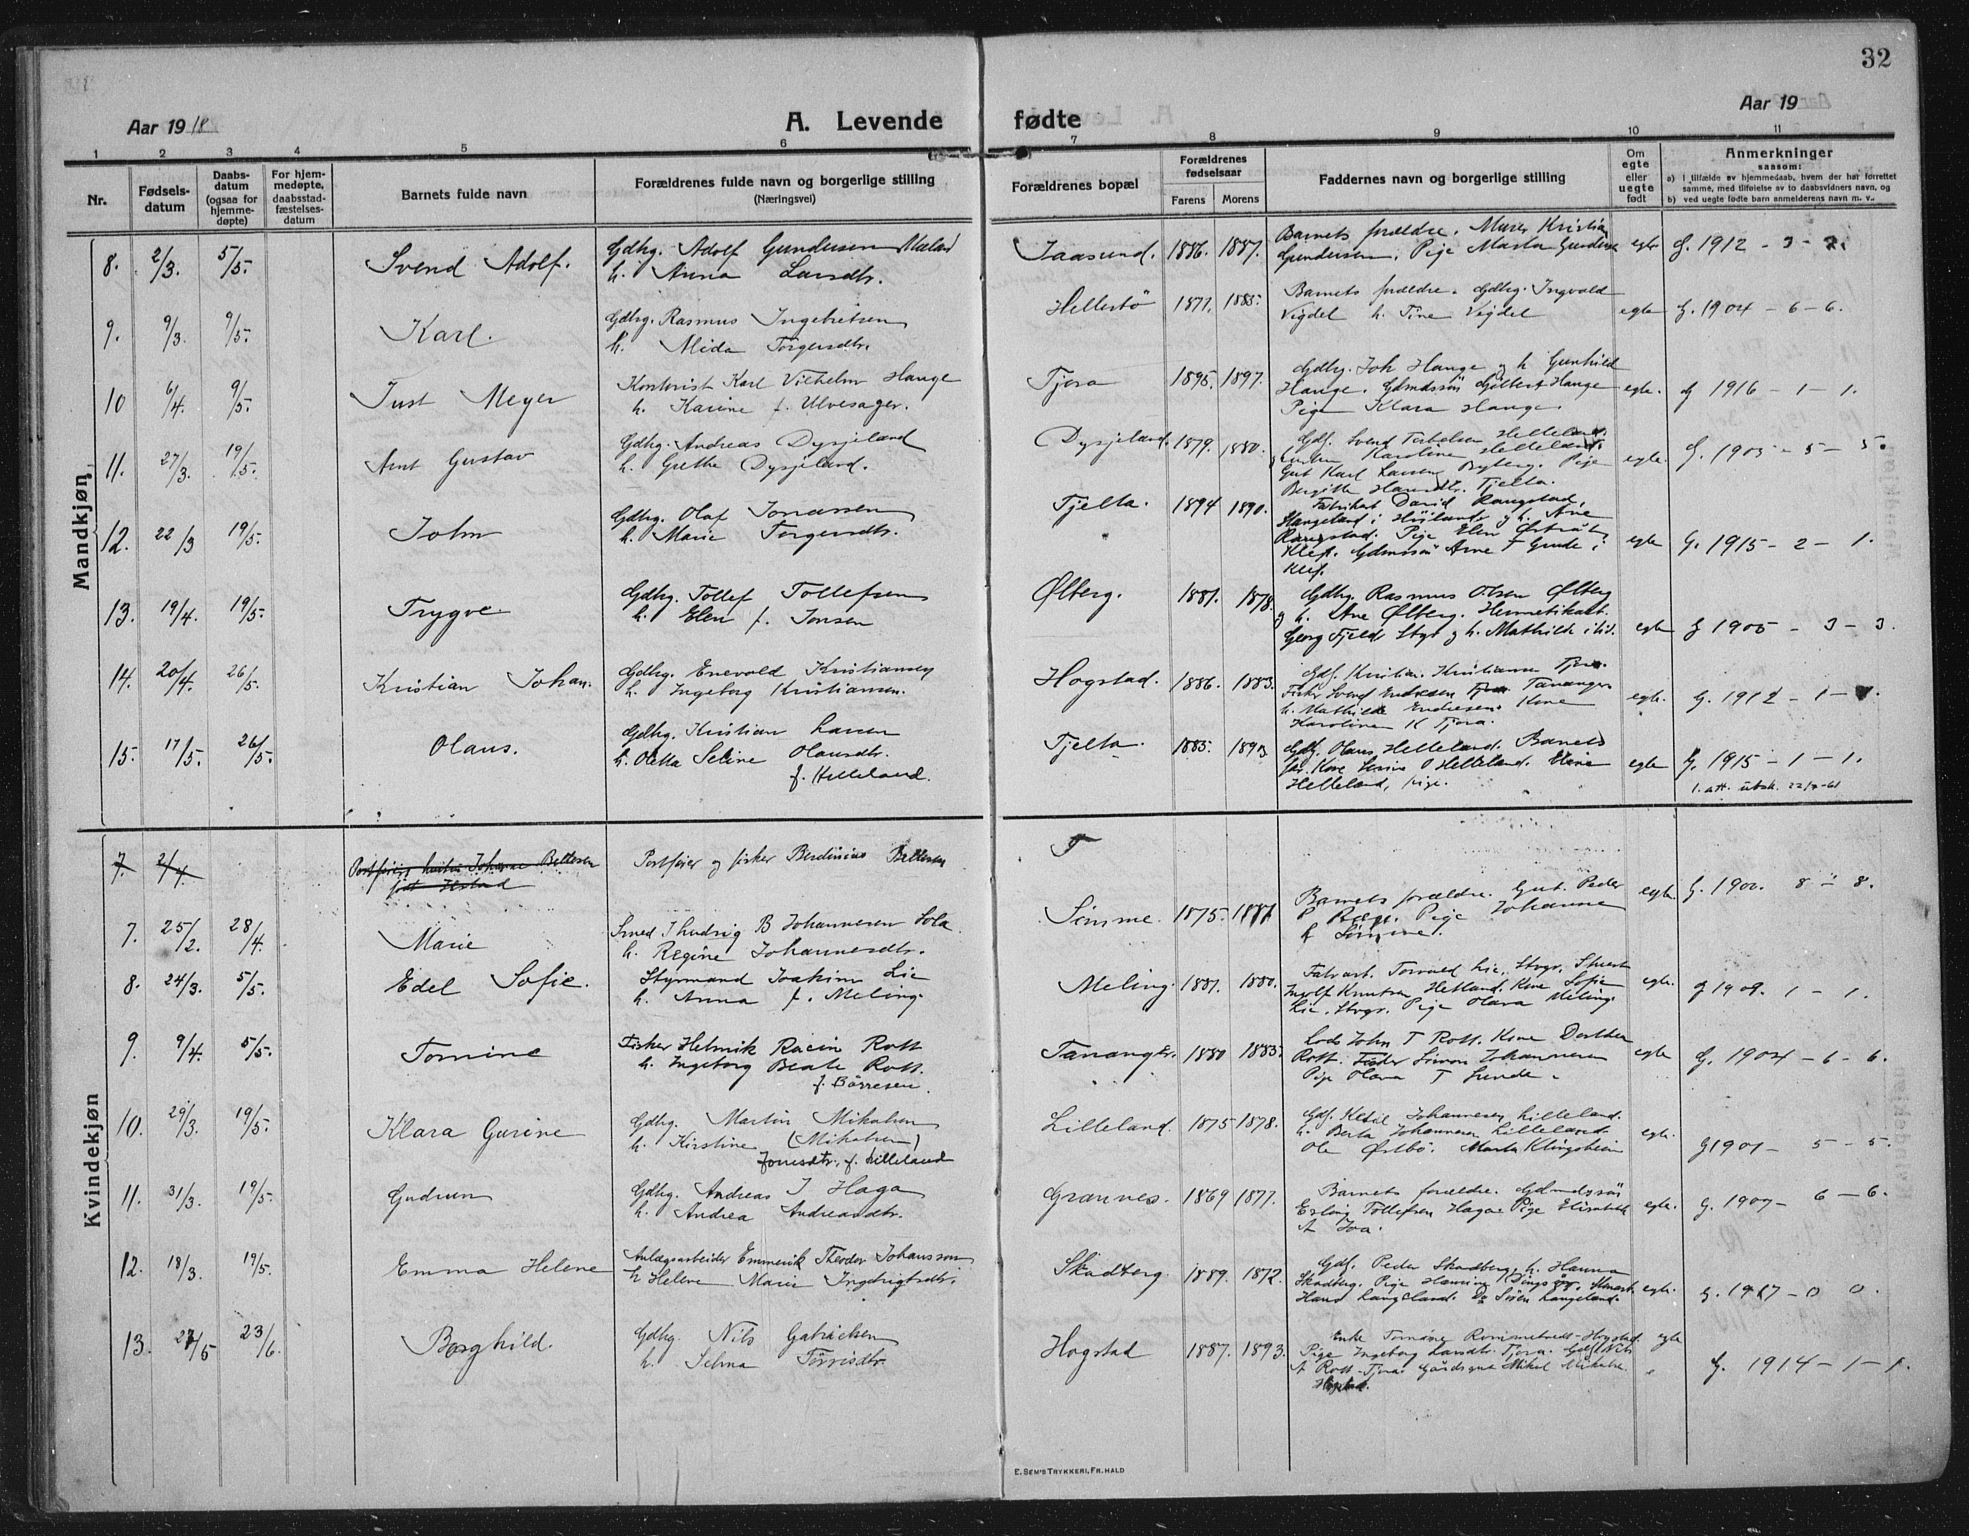 32
Aar 1918
A. Levende fødte
Aar 19
1 2 3 4 5 6 7 8 9 10 11
Nr.
Fødsels-
datum
Daabs-
datum
(ogsaa for
hjemme-
døpte)
For hjem-
medøpte,
daabsstad-
fæstelses-
datum
Barnets fulde navn
Forældrenes fulde navn og borgerlige stilling
(Næringsvei)
Forældrenes bopæl
Forældrenes
fødselsaar
Farens Morens
Faddernes navn og borgerlige stilling
Om
egte
eller
uegte
født
Anmerkninger
saasom:
a) i tilfælde av hjemmedaab, hvem der har forrettet
samme, med tilføielse av to daabsvidners navn, og
b) ved uegte fødte barn anmelderens navn m. v.
Mandkjøn
8. 2/3. 5/5. Svend Adolf. Gdbrg. Adolf Gundersen
h. Anna Larsdtr.
Jaasund. 1886. 1887. Barnets forældre. Murer Kristian
Gundersen. Pige Marta Gundersen
egte G. 1912 - 3 - 2.
9. 9/3. 9/5. Karl. Gdbrg. Rasmus Ingebretsen
h. Mida Torgersdtr.
Hellestö 1877. 1885. Barnets forældre. Gdbrg. Ingvald
Vigdel h. Tine Vigdel
egte G. 1904 - 6 - 6.
10 6/4. 9/5. Just Meyer Kontorist Karl Vilhelm Hauge
h. Karine f. Ulvesager.
Tjora 1895. 1897. Gdbrg. Joh Hauge og h Gunhild
Hauge. Gdmdssøn Gilbert Hauge
Pige Klara Hauge.
egte. G 1916 - 1 - 1.
11. 27/3. 19/5. Arnt Gustav Gdbrg. Andreas Dysjeland
h. Grethe Dysjeland.
Dysjeland. 1879. 1880. Gdf. Svend Torkelsen Helleland.
Karoline Helleland.
Gut Karl Larsen Byberg. Pige
Bergitte Hansdtr. Tjelta.
egte. G. 1903 - 5 - 5.
12. 22/3 19/5. John Gdbrg. Olaf Jonassen
h. Marie Torgersdtr.
Tjelta. 1894 1890. Fabrikat. David Rangstad,
Haugeland i Høiland og h. Ane
Rangstad. Pige Elen Østråt,
Klep. Gdmdssøn Arne T Grude i
Klep.
egte G. 1915 - 2 - 1.
13. 19/4. 19/5. Trygve Gdbrg. Tollef Tollefsen
h. Elen f. Jonsen
Ølberg. 1881. 1878. Gdbrg. Rasmus Olsen Ølberg
og h. Ane Ølberg. Hermetikarb.
Georg Fjelde Stgr og h. Mathilde
egte G 1905 - 3 - 3.
14. 20/4. 26/5. Kristian Johan. Gdbrg. Enevold Kristiansen
h. Ingeborg Kristiansen.
Hogstad. 1886. 1883. Gdf. Kristian Kristiansen Tjora.
Fisker Svend Endresen Tananger
h. Mathilde Endresen. Kone
Karoline K Tjora.
egte. G. 1912 - 1 -
15. 17/5. 26/5. Olaus. Gdbrg. Kristian Larsen
h. Oletta Seline Olausdtr.
f. Helleland.
Tjelta. 1885. 1893 Gdf. Olaus Helleland. Barnets
far. Kone Serine O Helleland.
Helleland, Pige.
egte G. 1915 - 1 - 1.
1. att. utsk. 22/7-61
Kvindekjøn
7. 2/4. Johanne Bellesen
Postfører og fisker Berdinius Bellesen
7. 25/2. 28/4. Marie Smed Thudvig B Johannesen Sola
h. Regine Johannesdtr.
Sömme. 1875. 1881 Barnets forældre. Gut Peder
P Rege. Pige Johanne
Sömme.
egte. G. 1900. 8 - 8.
8. 24/3. 5/5. Edel Sofie. Styrmand Joakim Lie
h. Anna f. Meling.
Meling. 1881. 1880. Torvald Lie, Stvgr.
Ingolf Knutsen Hetland. Kone Sofie
Lie, Stvgr. Pige Olava Meling.
egte. G 1909. 1 - 1.
9. 9/4. 5/5. Tomine Fisker Helmik Racin Rott
h. Ingeborg Beate Rott.
f. Börresen
Tananger. 1880 1883. Lods John T Rott. Kone Dorthea
Rott. Fisker Simon Johannesen
Pige Olava T Lunde.
egte G. 1904 - 6 - 6.
10. 29/3. 19/5. Klara Gurine Gdbrg. Martin Mikalsen
h. Kirstine (Mikalsen)
Jonasdtr. f. Lilleland
Lilleland. 1875 1878. Gdf. Ketil Johannesen Lilleland.
h. Berta Johannesen Lilleland.
Ole Østbö. Marta Klingsheim
egte. G 1901 - 5 - 5.
11. 31/3. 19/5. Gudrun Gdbrg. Andreas J Haga
h. Andrea Andreasdtr.
Grannes. 1869 1877. Barnets forældre. Gdmdssøn
Erling Tollefsen Haga Pige Elisabeth
egte. G. 1907 - 6 - 6.
12. 18/3. 19/5. Emma Helene Anlægsarbeider Emmerik Theodor Johansson
h Helene Marie Ingebrigtsdtr.
Skadberg. 1889. 1872. Gdf. Peder Skadberg, h. Hanna
Skadberg. Pige
Hans Langeland. Do Sören Langeland.
egte. G. 1917 - 0 0.
13. 27/5 23/6. Borghild. Gdbrg. Nils Gabrielsen
h. Selma Törrisdtr.
Hogstad 1887. 1893. Enke Tomine Rommetvedt - Hogstad.
Pige Ingeborg Larsdtr. Tjora. Gdf. Nils
A Rott - Tjora. Gårdsgut Mikal
Hogstad.
egte G. 1914 - 1 - 1.
E. SEM'S TRYKKERI, FR. HALD